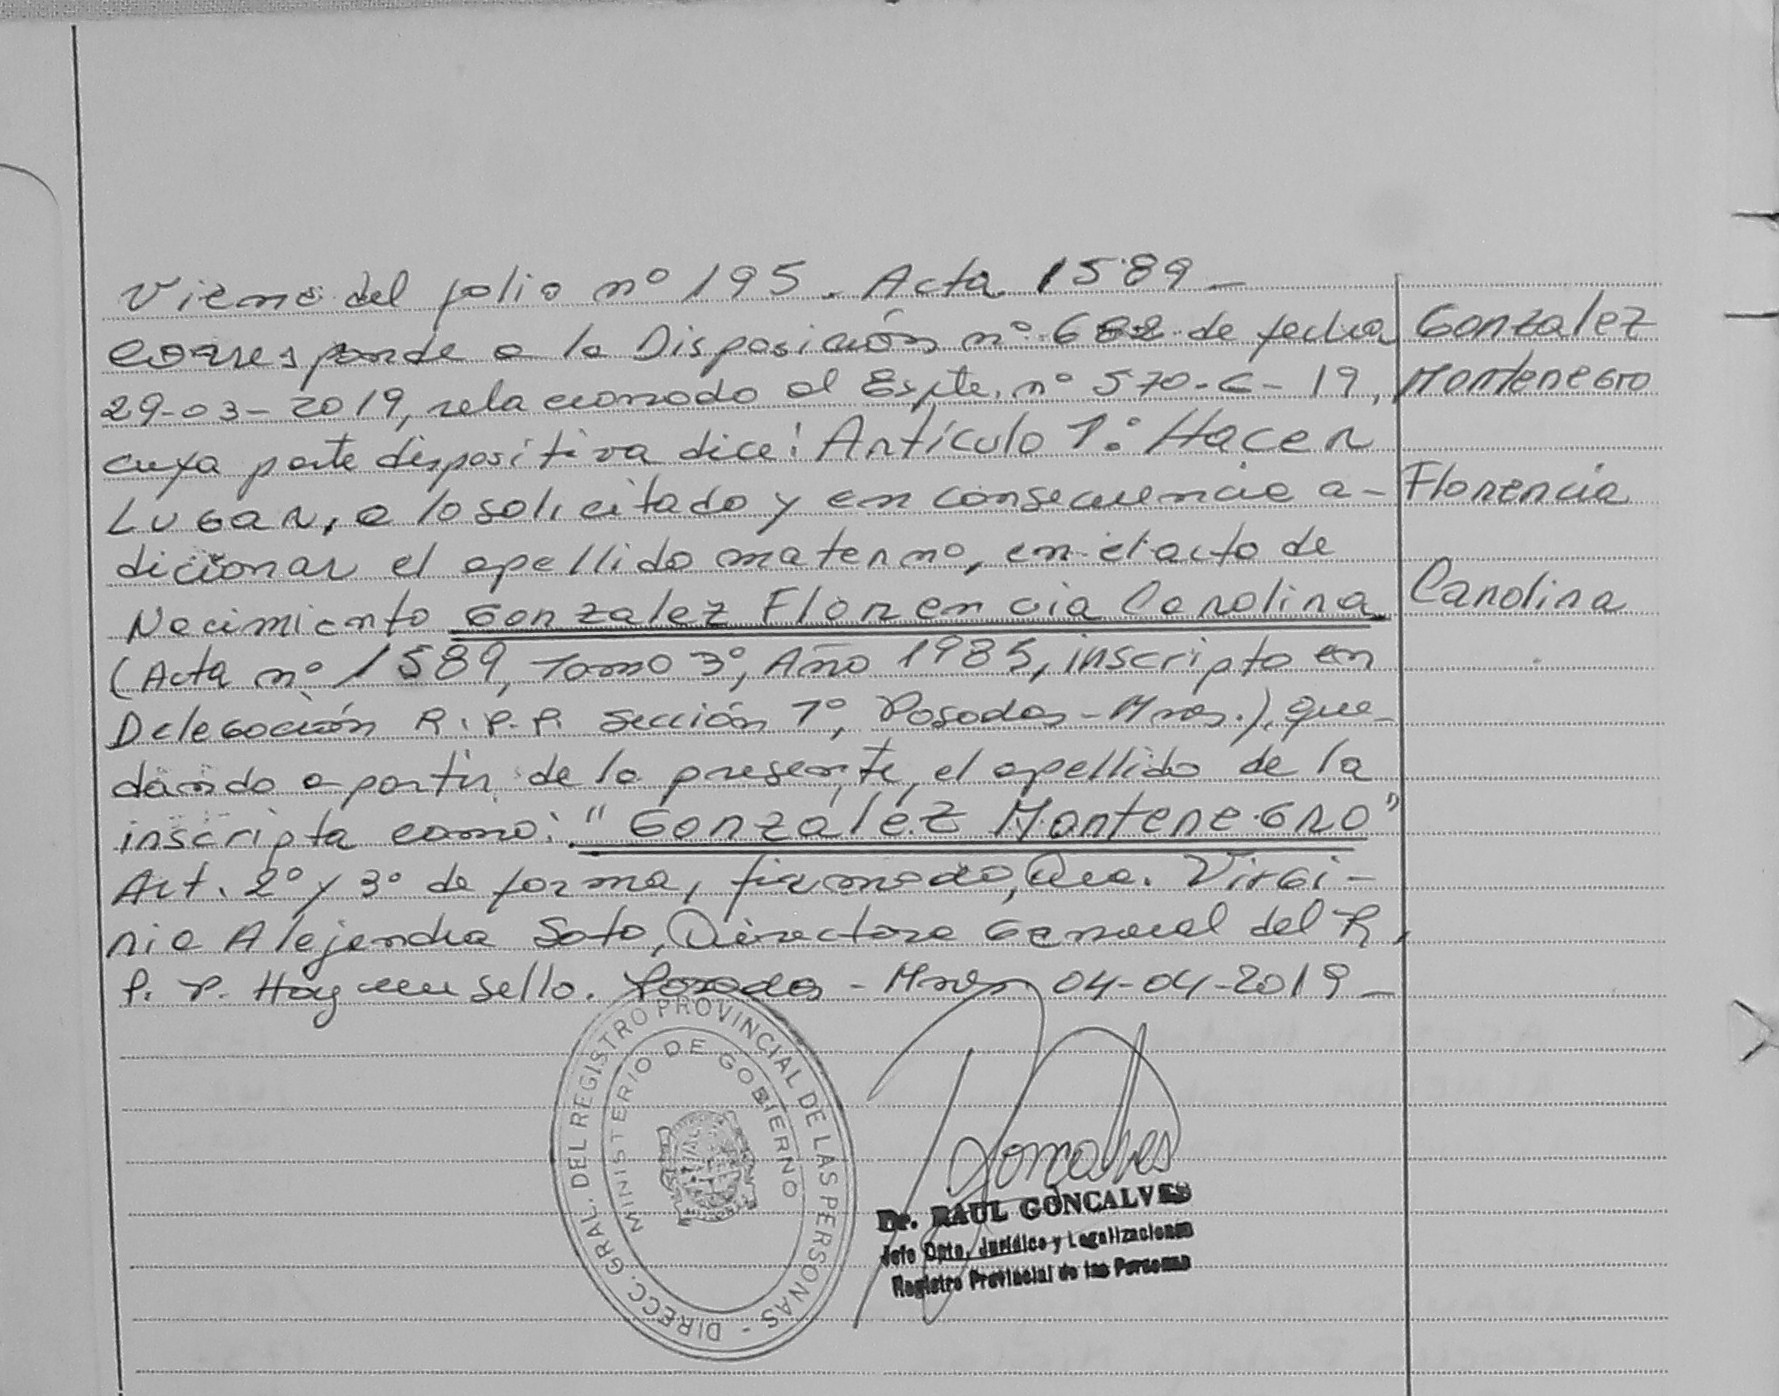 Viene del folio nº 195. Acta 1589-
Corresponde a la Disposición nº 682 de fecha
29-03-2019, relacionado al Expte. nº 570-C-19,
cuya parte dispositiva dice: Artículo 1º: Hacer
Lugar, a lo solicitado y en consecuencia a-
dicionar el apellido materno, en el acta de
Nacimiento Gonzalez Florencia Carolina
(Acta nº 1589, Tomo 3º, Año 1985, inscripta en
Delegación R.P.P. Sección 1º, Posadas-Mnes.), que-
dando a partir de la presente, el apellido de la
inscripta como: "González Montenegro"
Art. 2º y 3º de forma, firmado, Dra. Virgi-
nia Alejandra Soto, Directora General del R.
P. P. Hay un sello. Posadas - Mnes 04-04-2019-
Gonzalez
Montenegro
Florencia
Carolina
DIRECC. GRAL. DEL REGISTRO PROVINCIAL DE LAS PERSONAS -
MINISTERIO DE GOBIERNO
Goncalves
Dr. RAUL GONCALVES
Jefe Dpto. Jurídico y Legalizaciones
Registro Provincial de las Personas